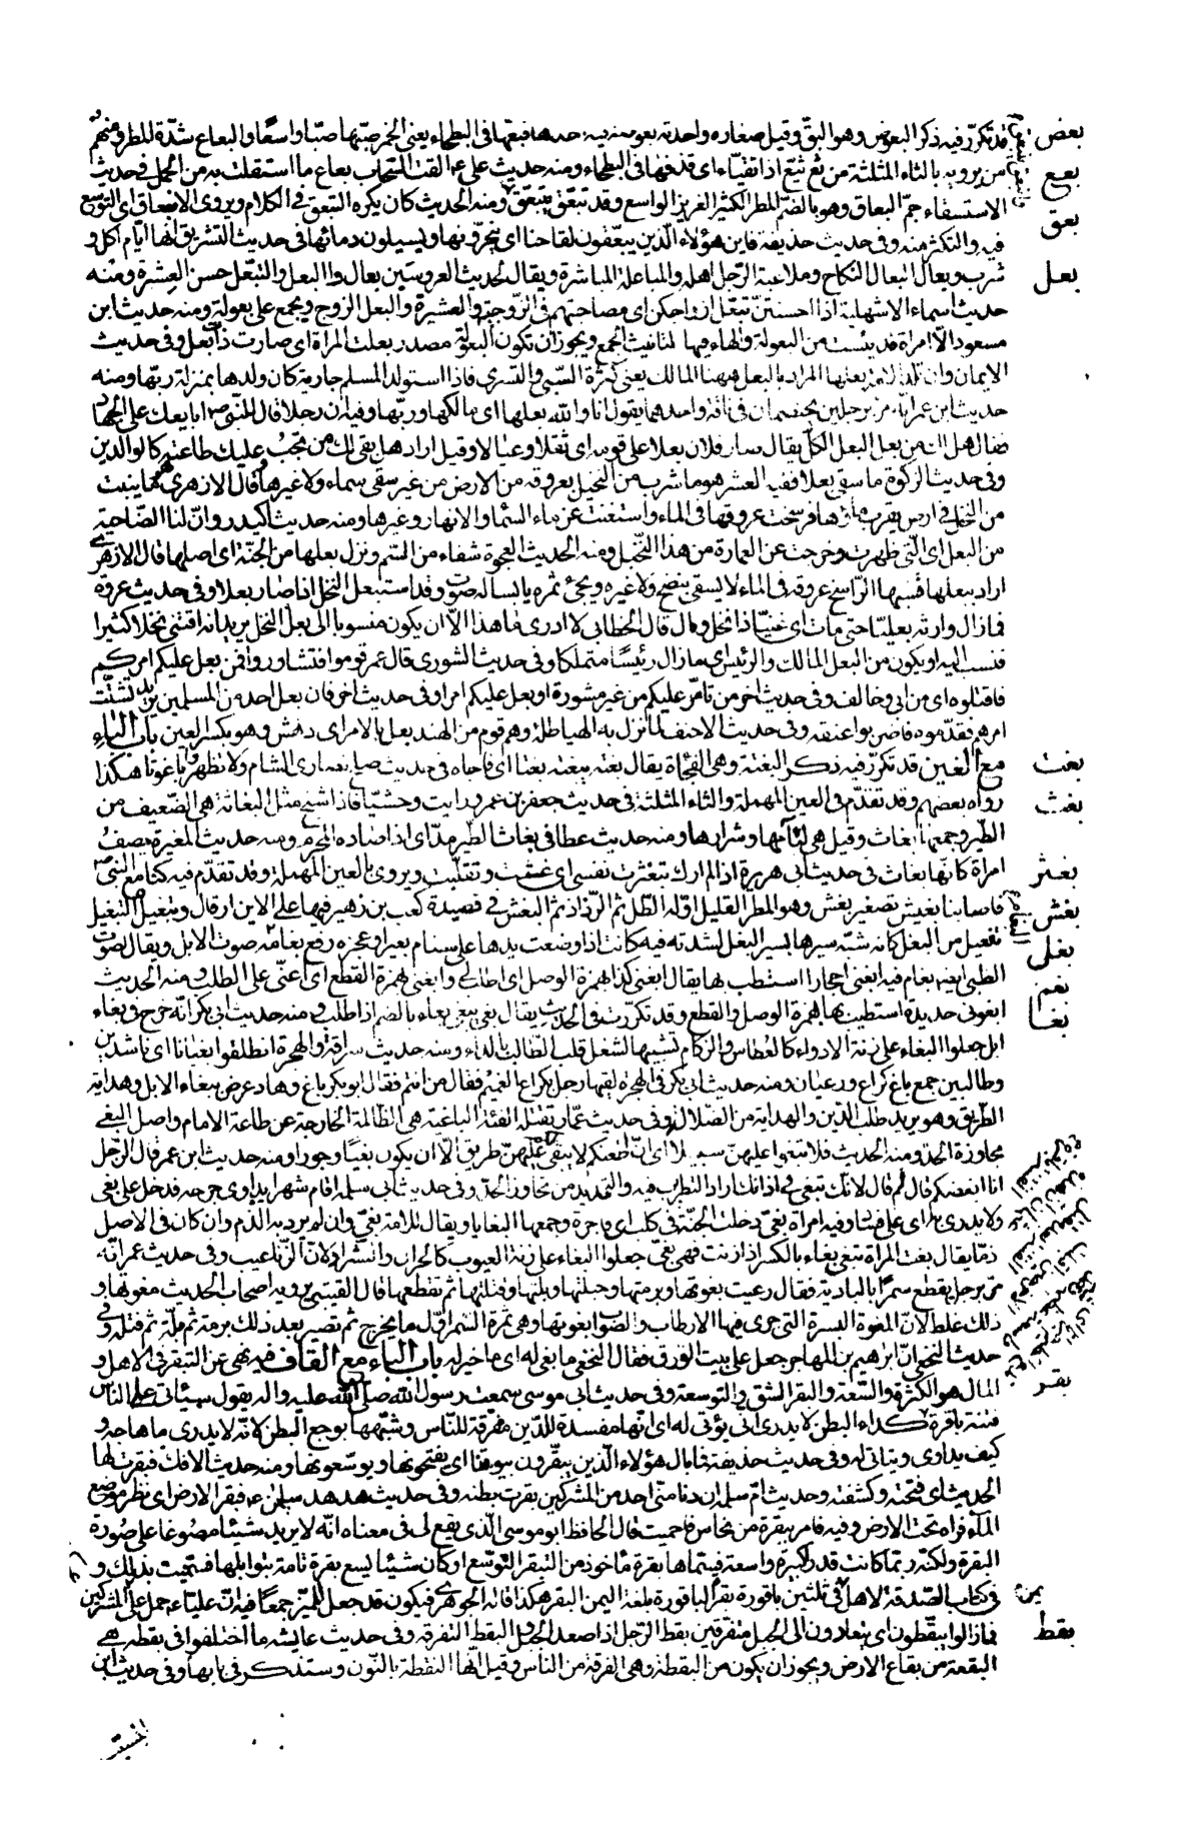 بعض قد تكرّر فيه ذكر البعوض وهو البقّ وقيل صغاره واحدته بعوضة فيه اخذها فبعّها في البطحاء يعني الخمر صبّها صبّا واسعًا والبعاع شدّة المطر ومنهم
بعع من يرويه بالثاء المثلثة من ثعّ يثعّ اذا تقيّاء اى قذفها في البطحاء ومنه حديث علىّ ع القت السّحاب بعاع ما استقلّت به من الحمل في حديث
بعق الاستسقاء جمّ البعاق وهو بالضمّ المطر الكثير الغزير الواسع وقد تبعّق يتبعّق ومنه الحديث كان يكره التبعّق في الكلام ويروى الانبعاق اى التوسّع
فيه والتكثر منه وفي حديث حذيفة فاين هؤلاء الّذين يبعّقون لقاحنا اى ينحرونها ويسيلون دمائها في حديث التشريق انّها ايّام اكل و
بعل شرب وبعال البعال النّكاح وملاعبة الرّجل اهله والمباعلة المباشرة ويقال لحديث العروسين بعال والبعل والتبعّل حسن العِشرة ومنه
حديث اسماء الاشهلية اذا احسنتنّ تبعّل ازواجكن اى مصاحبتهم في الزوجية والعشيرة والبعل الزوج ويجمع على بعولة ومنه حديث ابن
مسعود الّا امراة قد يئست من البعولة والهاء فيها لتانيث الجمع ويجوز ان تكون البعولة مصدر بعلت المراة اى صارت ذات بعل وفي حديث
الايمان وان تلد الامة بعلها المراد بالبعل ههنا المالك يعني كثرة السّبي والتسرّى فاذا استولد المسلم جارية كان ولدها بمنزلة ربّها ومنه
حديث ابن عبّاس مرّ برجلين يختصمان في ناقة واحدهما يقول انا والله بعلها اى مالكها وربّها وفيه ان رجلا قال للنّبي ص ابايعك على الجهاد
فقال هل لك من بعل البعل الكلّ يقال صار فلان بعلا على قومه اى ثقلا وعيالا وقيل اراد هل بقى لك من تجبُ عليك طاعته كالوالدين
وفي حديث الزكوة ما سقى بعلا ففيه العشر هو ما شرب من النّخيل بعروقه من الارض من غير سقى سماء ولا غيرها قال الازهرى هو ما ينبت
من النخل في ارض يقرب ماؤها فرسخت عروقها في الماء واستغنت عن ماء السّماء والانهار وغيرها ومنه حديث اكيدر وانّ لنا الضّاحية
من البعل اى الّتي ظهرت وخرجت عن العمارة من هذا النّخيل ومنه الحديث العجوة شفاء من السّم ونزل بعلها من الجنّة اى اصلها قال الازهرى
اراد ببعلها قسبها الرّاسخ عروقه في الماء لا يسقى بنضح ولا غيره ويجئ ثمره يابسا له صوت وقد استبعل النخل اذا صار بعلا وفي حديث عروة
فما زال وارثه بعليّا حتى مات اى غنيّا ذا نخل ومال قال الخطابي لا ادرى ما هذا الّا ان يكون منسوبا الى بعل النخل يريد انه اقتنى نخلا كثيرا
فنسب اليه او يكون من البعل المالك والرئيس اى ما زال رئيسًا متملكا وفي حديث الشورى قال عمر قوموا فتشاوروا فمن بعل عليكم امركم
فاقتلوه اى من ابي وخالف وفي حديث اخر من تامّر عليكم من غير مشورة او بعل عليكم امرا وفي حديث اخر فان بعل احد من المسلمين يريد تشتّت
امرهم فقدّموه فاضربوا عنقه وفي حديث الاحنف لما نزل به الهياطلة وهم قوم من الهند بعل بالامر اى دهش وهو بكسر العين باب الباء
بغت مع الغين قد تكرّر فيه ذكر البغتة وهى الفجأة يقال بغته يبغته بغتا اى فاجاه في حديث صلح نصارى الشام ولا نظهر باغوثا هكذا
بغث رواه بعضهم وقد تقدّم في العين المهملة والثاء المثلثة في حديث جعفر بن عمرو رايت وحشيّا فاذا شيخ مثل البغاثة هى الضّعيف من
الطير وجمعها بغاث وقيل هى لئامها وشرارها ومنه حديث عطا في بغاث الطّير مدّ اى اذا صاده المحرم ومنه حديث المغيرة يصف
بغثر امراة كانّها بغاث في حديث ابي هريرة اذا لم ارك تبغثرت نفسي اى غثت وتقلّبت ويروى بالعين المهملة وقد تقدّم فيه كنّا مع النبيّ
بغش فاصابنا بغيش تصغير بغش وهو المطر القليل اوّله الطّل ثمّ الرّذاذ ثمّ البغش في قصيدة كعب بن زهير فيها على الاين ارقال وتبغيل التبغيل
بغل تفعيل من البغل كانه شبّه سيرها بسير البغل لشدته فيه كانت اذا وضعت يدها على سنام بعير او عجزه رفع بغامه صوت الابل ويقال لصوت
بغم الظبي ايضا بغام فيه ابغني احجارا استطب بها يقال ابغني كذا بهمزة الوصل اى اطلب لي وابغني بهمزة القطع اى اعنّي على الطلب ومنه الحديث
بغا ابغوني حديدة استطيب بها بهمزة الوصل والقطع وقد تكرّرت في الحديث يقال بغى يبغى بغاء بالضم اذا طلب ومنه حديث ابي بكر انّه خرج في بغاء
ابل جعلوا البغاء على زنة الادواء كالعُطاس والزكام تشبيها لشغل قلب الطّالب بالدّاء ومنه حديث سراقة والهجرة انطلقوا بغيانا اى ناشدين
وطالبين جمع باغ كراع ورعيان ومنه حديث ابي بكر في الهجرة لقيهما رجل بكراع الغميم فقال من انتم فقال ابو بكر باغ وهاد عرض ببغاء الابل وهداية
الطّريق وهو يريد طلب الدّين والهداية من الضّلالة وفي حديث عمّار تقتله الفئة الباغية هى الظّالمة الخارجة عن طاعة الامام واصل البغي
مجاوزة الحدّ ومنه الحديث فلا تبغوا عليهنّ سبيلا اى ان اطعنكم لا يبقى لكم عليهنّ طريق الّا ان يكون بغيًا وجورا ومنه حديث ابن عمر قال الرّجل
انا ابغضك قال لم قال لانّك تبغي في اذانك اراد التطريب فيه والتمديد من تجاوز الحدّ وفي حديث ابي سلمة اقام شهرا يداوى جرحه فدخل على بغي
ولا يدرى به اى على فساد وفيه امراة بغيّ دخلت الجنّة في كلب اى فاجرة وجمعها البغايا ويقال للامة بغيّ وان لم يرد به الذّم وان كان في الاصل
ذمّا يقال بغت المراة تبغي بغاء بالكسر اذا زنت فهى بغيّ جعلوا البغاء على زنة العيوب كالحران والشراد لانّ الزّنا عيب وفي حديث عمر انّه
مرّ برجل يقطع سمرًا بالبادية فقال رعيت بغوتها وبرمتها وحبلتها وبلّتها وفتلتها ثم تقطعها قال القتيبي يرويه اصحاب الحديث معوتها و
ذلك غلط لانّ المعوة البسرة التي جرى فيها الارطاب والصّواب بغوتها وهى ثمرة السّمر اوّل ما يخرج ثم تصير بعد ذلك برمة ثم بلّة ثم فتلة وفي
حديث النخعي انّ ابرهيم بن المهاجر جعل على بيت الورق فقال النخعي ما بغي له اى ما خير له باب الباء مع القاف فيه نهى عن التبقر في الاهل و
بقر المال هو الكثرة والسّعة والبقر الشّق والتوسعة وفي حديث ابي موسى سمعت رسول الله صلّى الله عليه واله يقول سيئاتي على الناس
فتنة باقرة كداء البطن لا يدرى انّى يؤتى له اى انّها مفسدة للدّين مفرّقة للنّاس وشبّهها بوجع البطن لانّه لا يدرى ما هاجه و
كيف يداوى ويتاتى له وفي حديث حذيفة فما بال هؤلاء الّذين يبقّرون بيوتنا اى يفتحونها ويوسّعونها ومنه حديث الافك فبقرت لها
الحديث اى فتحته وكشفته وحديث امّ سليم ان دنا منّى احد من المشركين بقرت بطنه وفي حديث هدهد سليمن ع فبقر الارض اى نظر موضع
الماء فراه تحت الارض وفيه فامر ببقرة من نحاس فاحميت قال الحافظ ابو موسى الّذي يقع لي في معناه انّه لا يريد شيئا مصوغا على صورة
البقرة ولكنّه ربّما كانت قدرا كبيرة واسعة فسمّاها بقرة ماخوذ من التبقر التوسّع او كان شيئا يسع بقرة تامّة بتوابلها فسمّيت بذلك و
في كتاب الصّدقة لاهل اليمن في ثلثين باقورة بقرة الباقورة بلغة اليمن البقر هكذا قاله الجوهرى فيكون قد جعل المميّز جمعًا فيه انّ عليّا ع حمل على المشركين
بقط فما زالوا يبقّطون اى يتعادون الى الجبل متفرقين بقط الرّجل اذا صعد الجبل والبقط التفرقة وفي حديث عايشه ما اختلفوا في بقطة هى
البقعة من بقاع الارض ويجوز ان يكون من البقطة وهى الفرقة من الناس وقيل انّها النقطة بالنّون وستذكر في بابها وفي حديث ابن